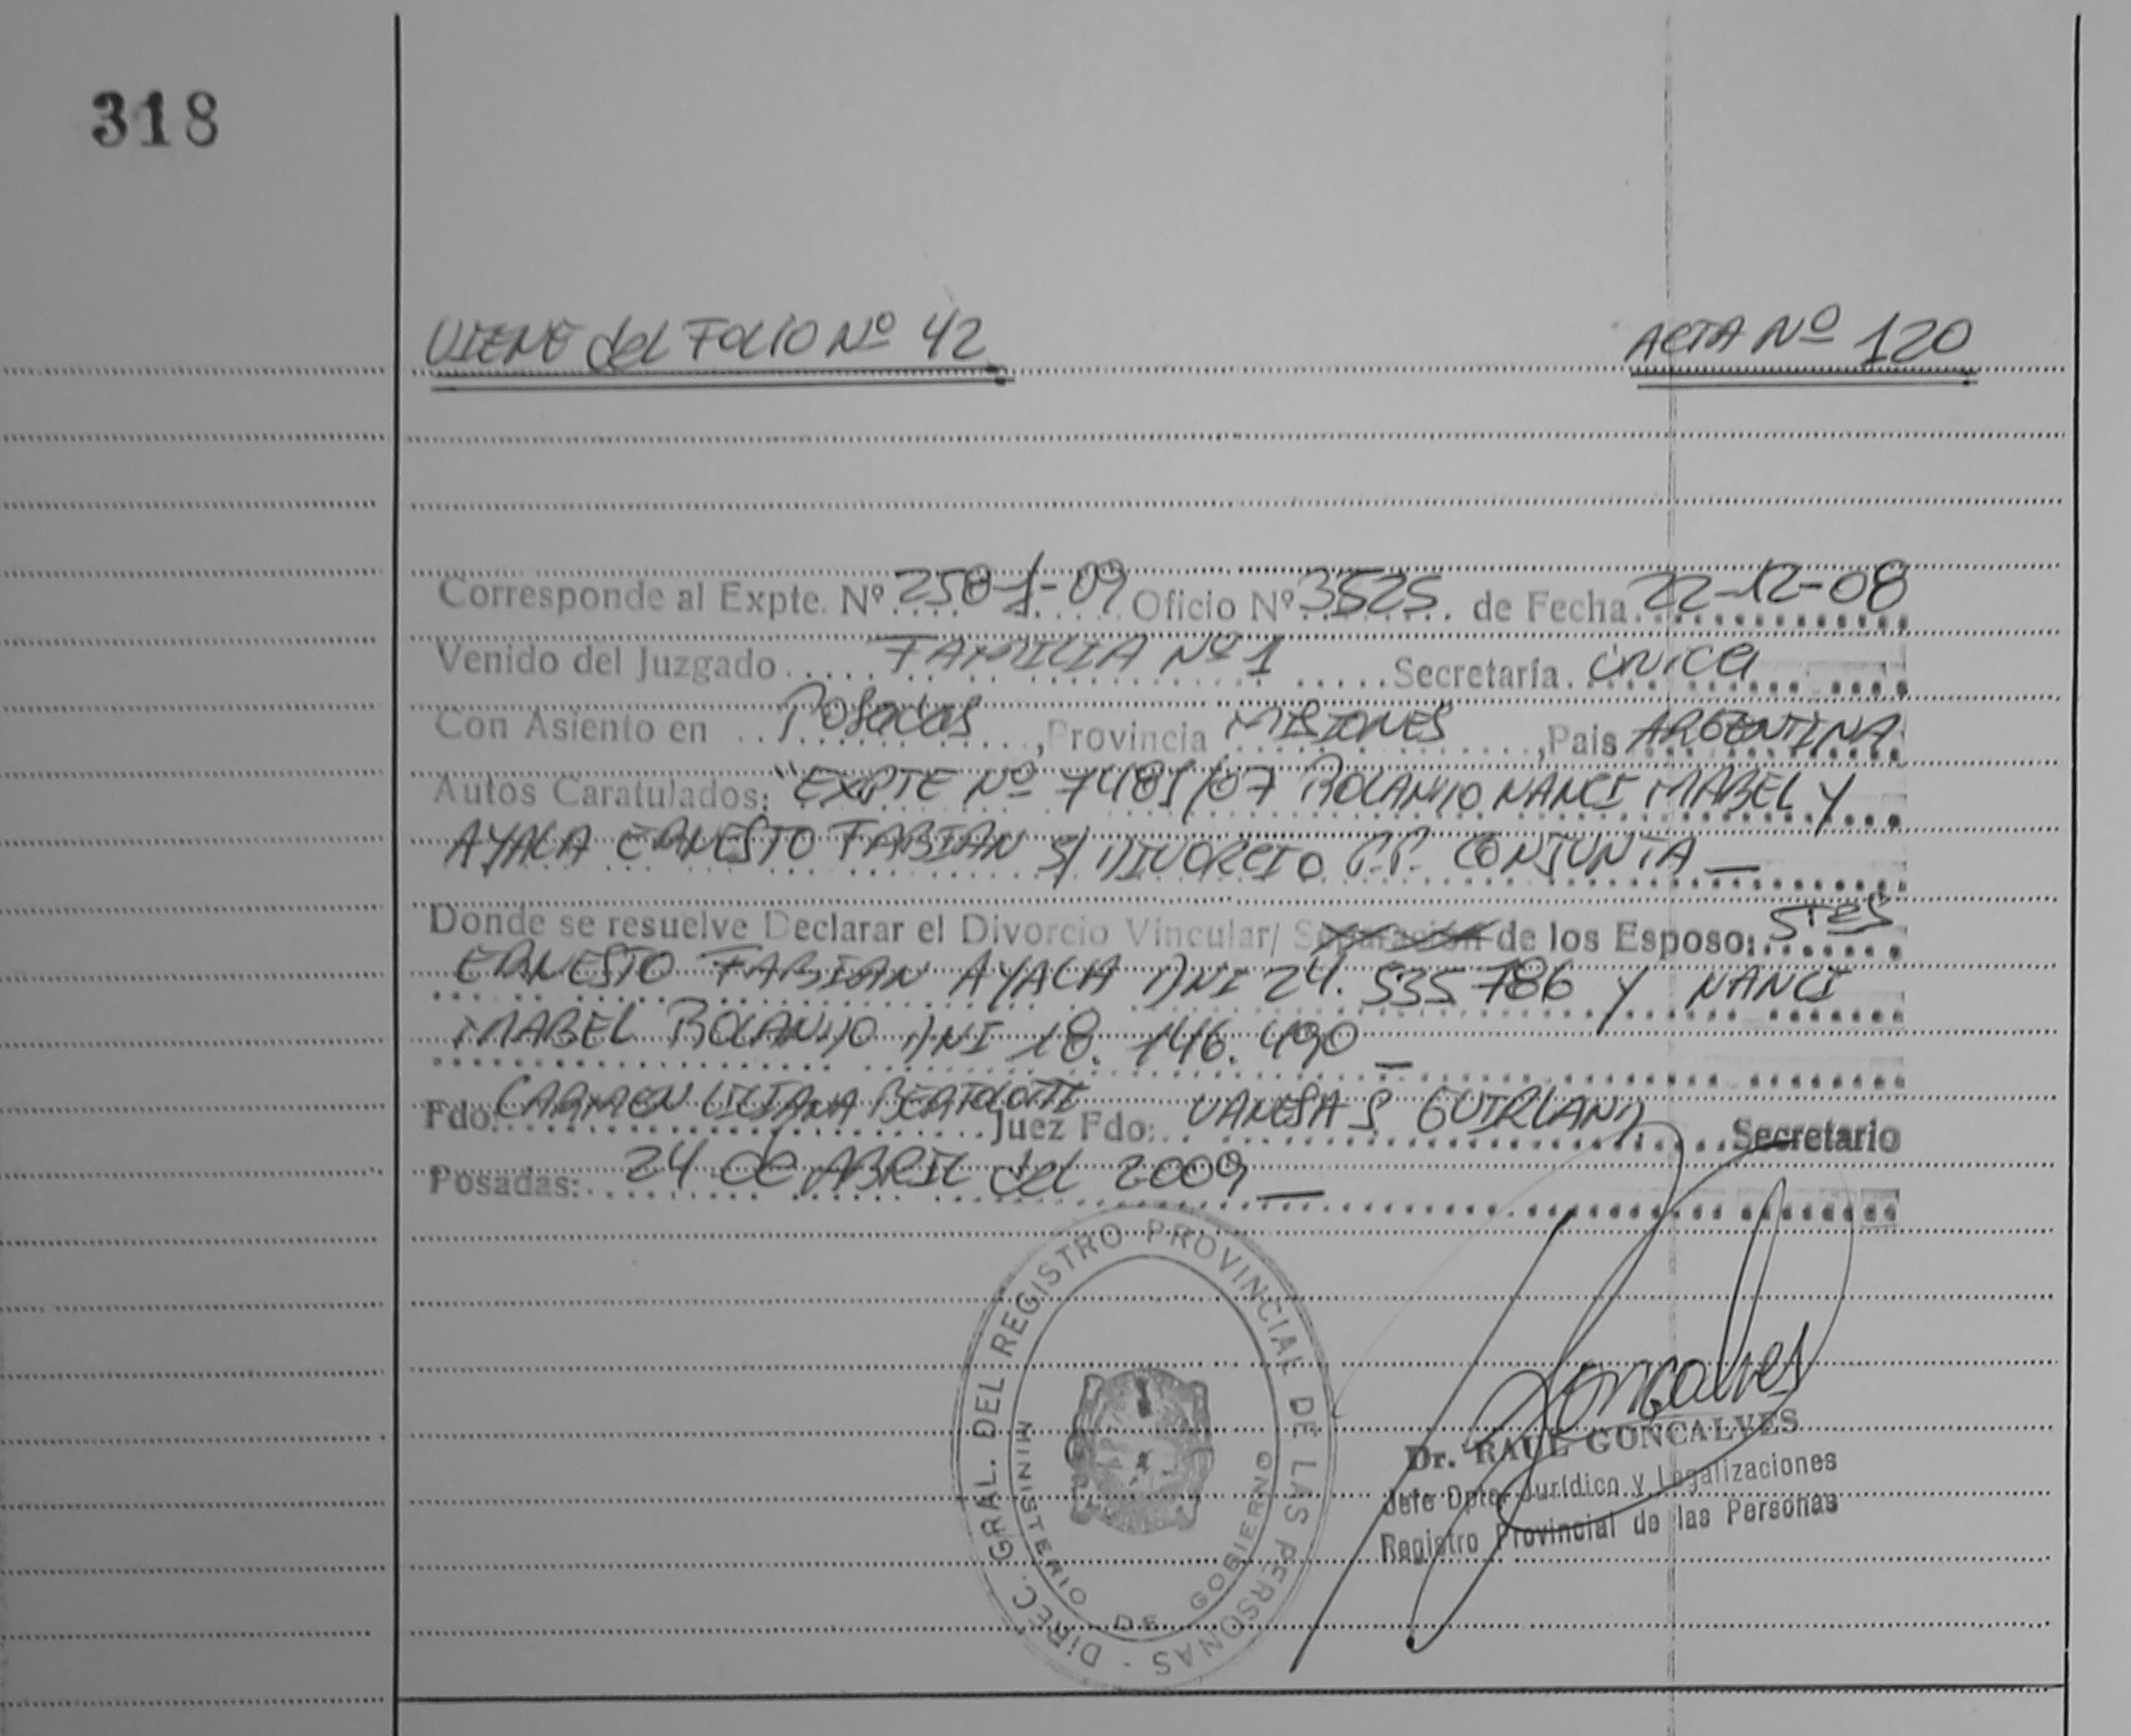 318
VIENE del FOLIO Nº 42
ACTA Nº 120
Corresponde al Expte. Nº 2581-09 Oficio Nº 3525 de Fecha 22-12-08
Venido del Juzgado FAMILIA Nº 1 Secretaría única
Con Asiento en Posadas, Provincia MISIONES, Pais ARGENTINA
Autos Caratulados: "EXPTE Nº 7481/07 ROLANDO NANCI MABEL Y
AYALA ERNESTO FABIAN S/ DIVORCIO P.P. CONJUNTA —
Donde se resuelve Declarar el Divorcio Vincular/ Separación de los Esposo: STES
ERNESTO FABIAN AYALA DNI 24.535786 Y NANCI
MABEL ROLANDO DNI 18.146.490 —
Fdo: CARMEN LILIANA BERTOLOTTI Juez Fdo: VANESA S GUIRLAND Secretario
Posadas: 24 de ABRIL del 2009 —
DIREC. GRAL. DEL REGISTRO PROVINCIAL DE LAS PERSONAS -
MINISTERIO DE GOBIERNO
Goncalves
Dr. RAUL GONCALVES
Jefe Dpto. Jurídico y Legalizaciones
Registro Provincial de las Personas